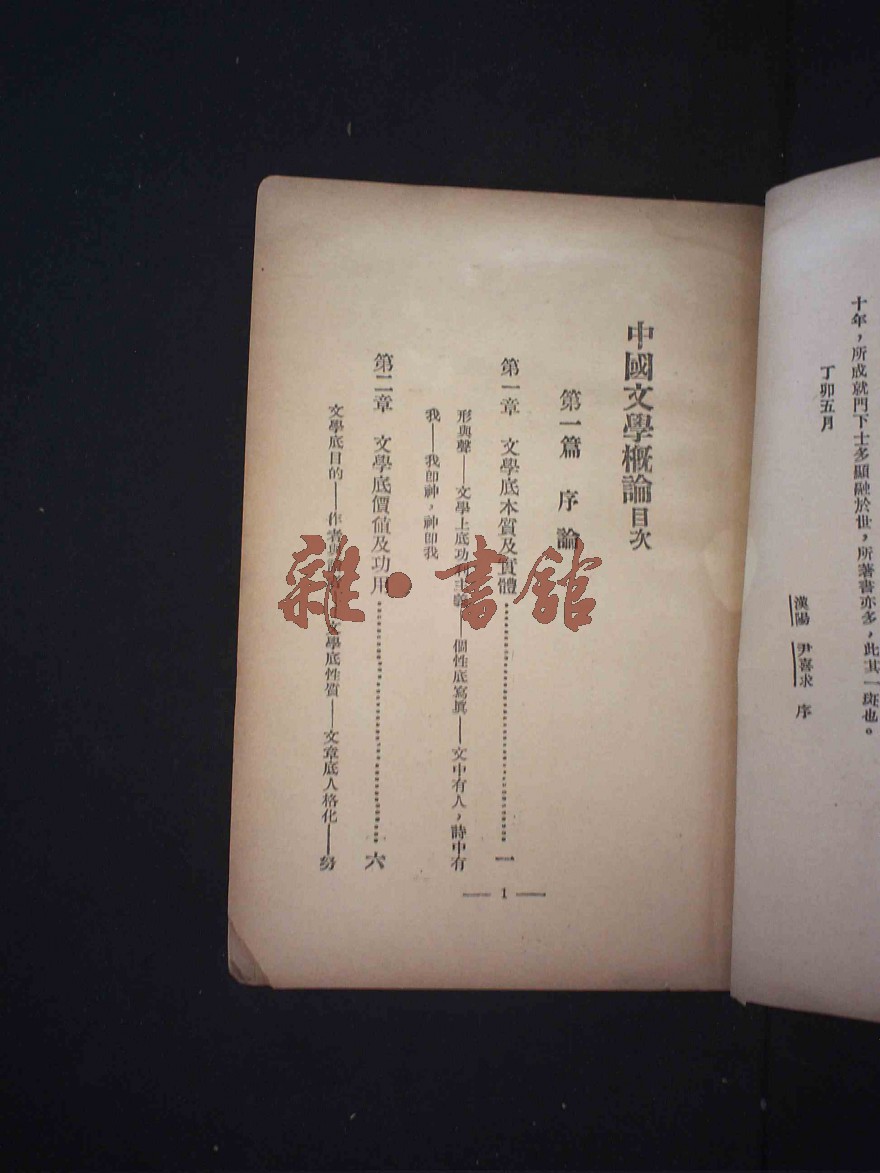 十年，所成就門下士多顯融於世，所著書亦多，此其一斑也。
丁卯五月
漢陽 尹喜求 序
中國文學概論目次
第一篇 序論
第一章 文學底本質及實體…………一
形與聲——文學上底功利主義——個性底寫眞——文中有人，詩中有
我——我卽神，神卽我
第二章 文學底價値及功用…………六
文學底目的——作者與 文學底性質——文章底人格化——努
— 1 —
雜·書館